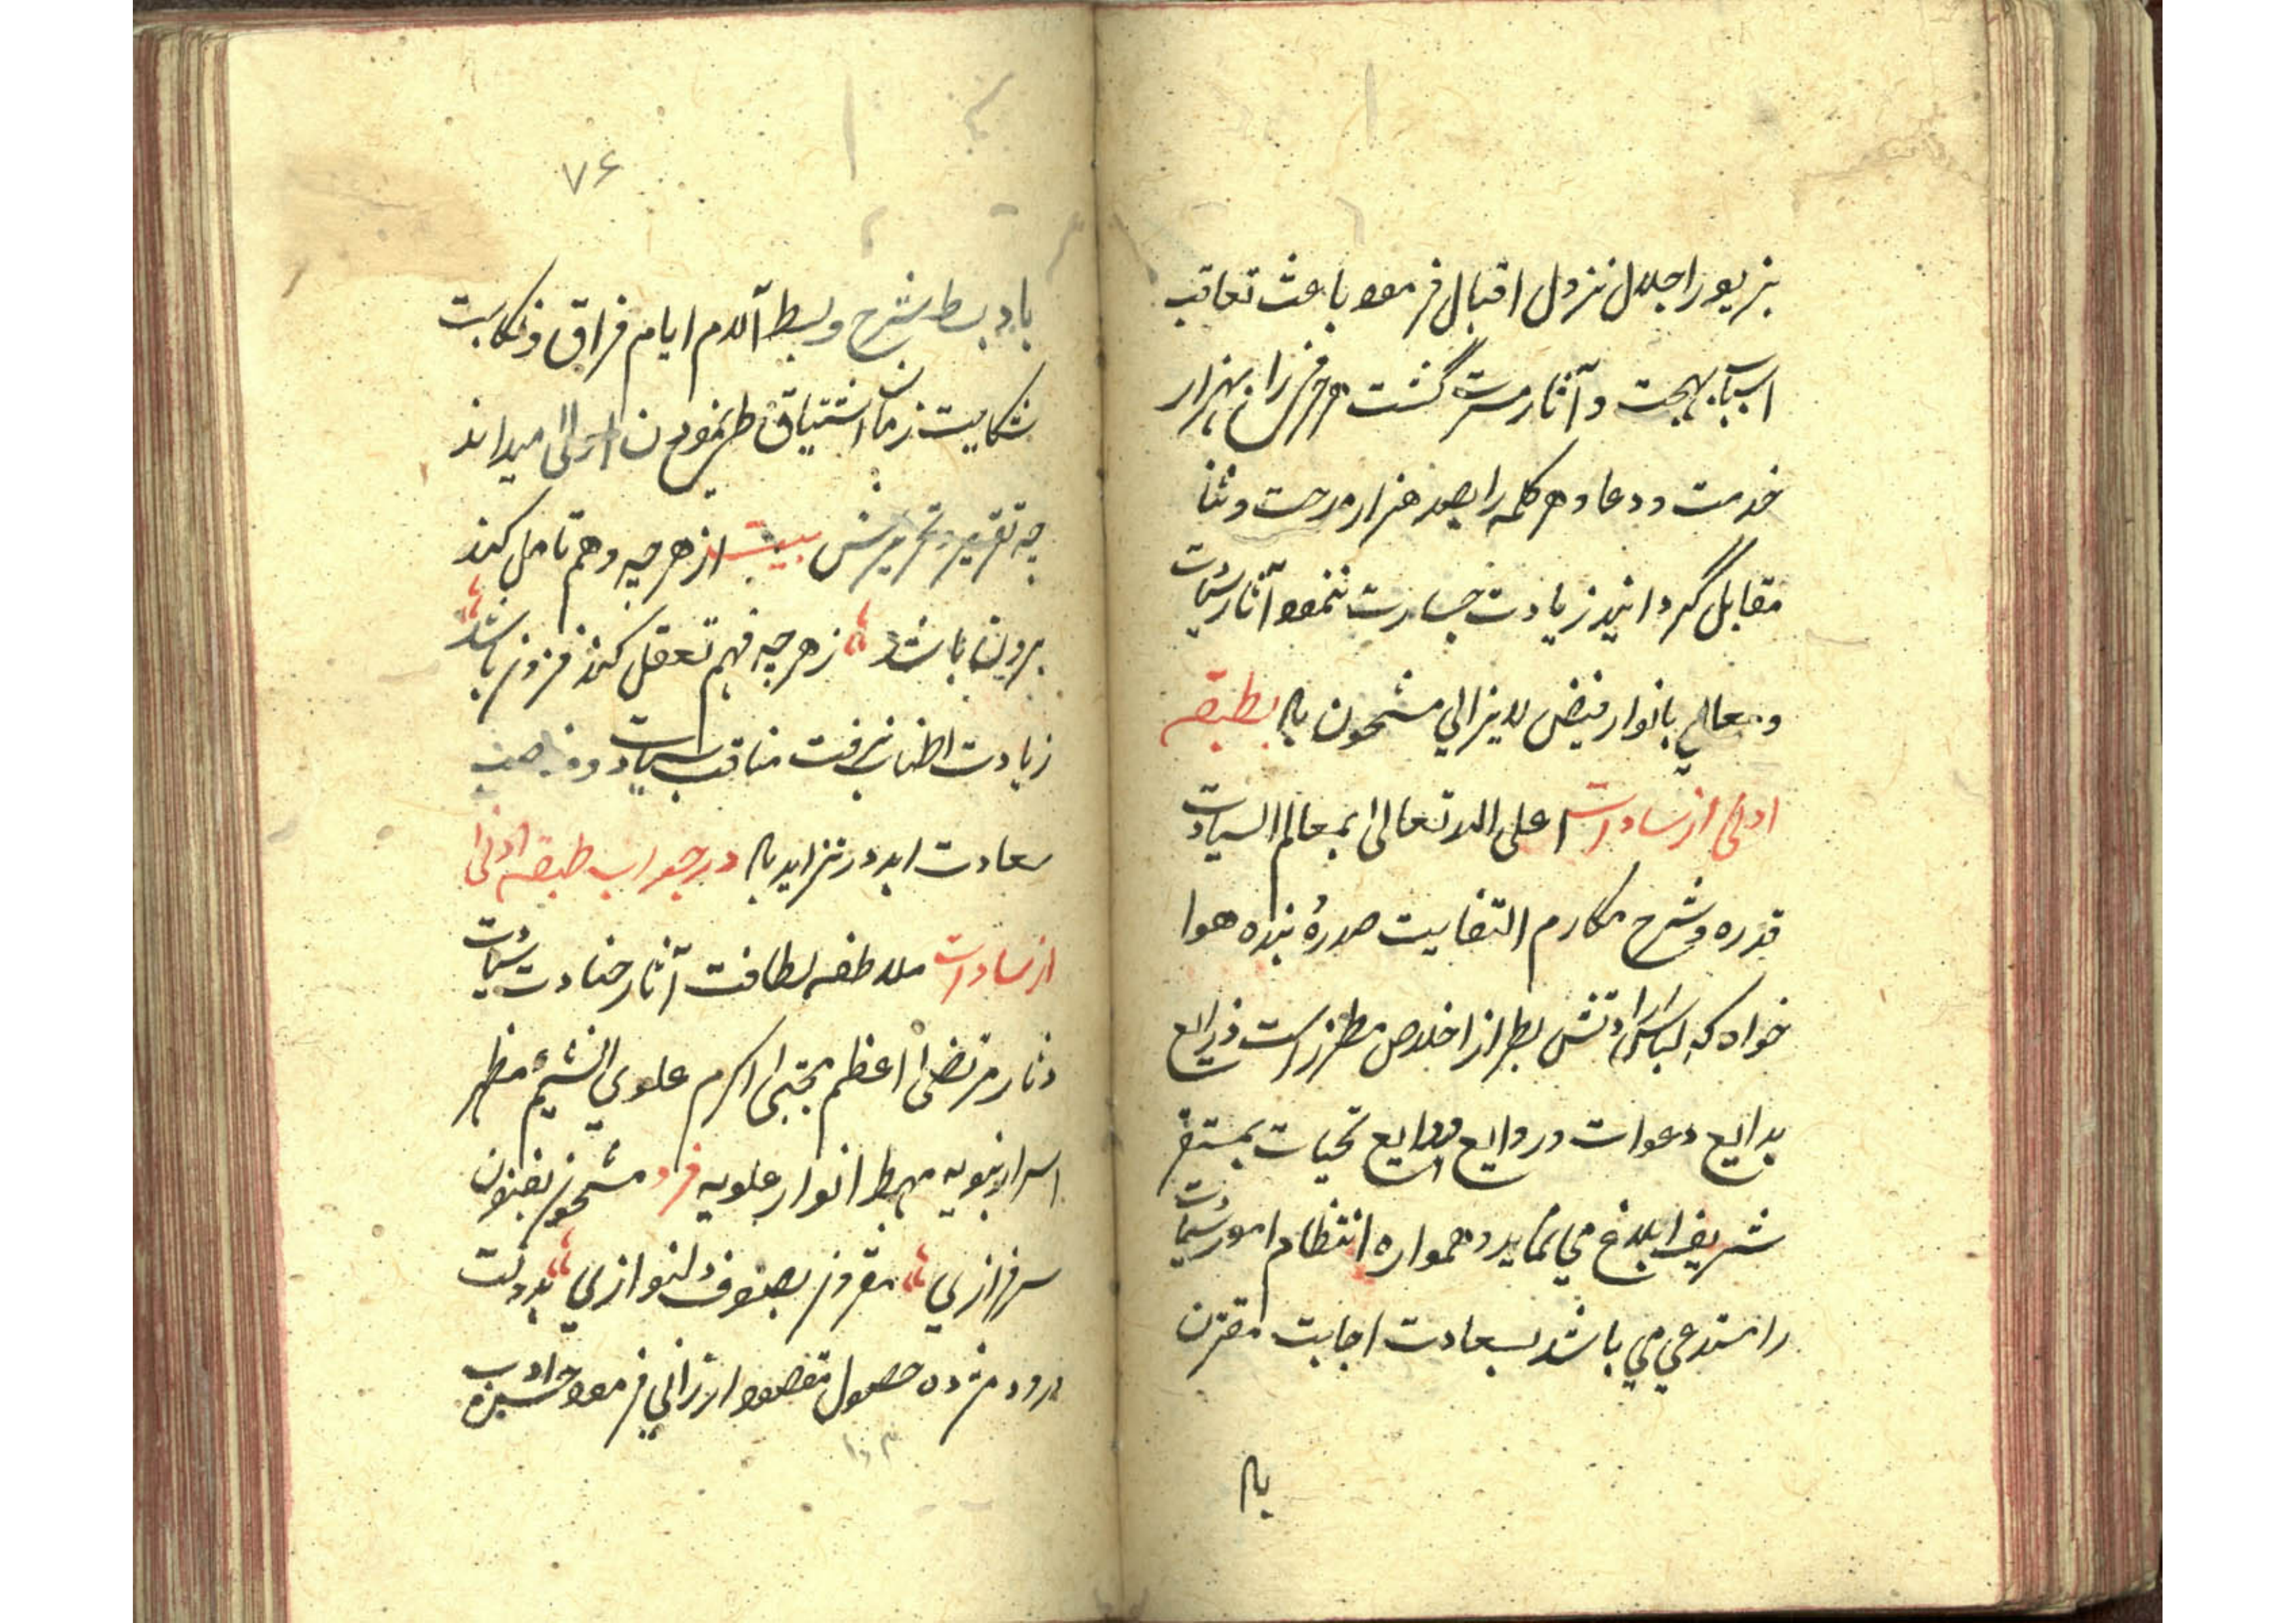 بزیور اجلال نزول اقبال فرموده باعث تعاقب
اسباب بهجت و آثار مسرت گشت هر حرفی را بهزار
خدمت و دعا و هر کلمه را بصد هزار مدحت و ثنا
مقابل گردانید زیادت جسارت ننمود آثار سیادت
و معالی بانوار فیض لایزالی مشحون باد بطبقه
اولی از سادات اعلی الله تعالی بمعالم السیادت
قدره و شرح بمکارم التقابت صدره بنده هوا
خواه که لباس ارادتش بطراز اخلاص مطرز است ذرایع
بدایع دعوات و روایع ودایع تحیات بمستقر
شریف ابلاغ می نماید و همواره انتظام امور سیادت
را مستدعی می باشد بسعادت اجابت مقترن
باد
۷۶
باد بسط شرح و بسط آلام ایام فراق و نکایت
شکایت زمان اشتیاق طی نمودن اولی میداند
چه تقریر و تحریرش بیت از هر چه وهم تامل کند
برون باشد زهر چه فهم تعقل کند فزون باشد
زیادت اطناب نرفت مناقب سیادت و مناصب
سعادت ابدا در تزاید باد در جواب طبقه اولی
از سادات ملاطفه لطافت آثار جناب سیادت
دثار مرتضی اعظم مجتبی اکرم علوی الشیم مظهر
اسرار نبویه مهبط انوار علویه فرد مشحون بفنون
سرفرازی مقرون بصنوف دلنوازی بدولت
ورود مژده حصول مقصود ارزانی فرمود جواب